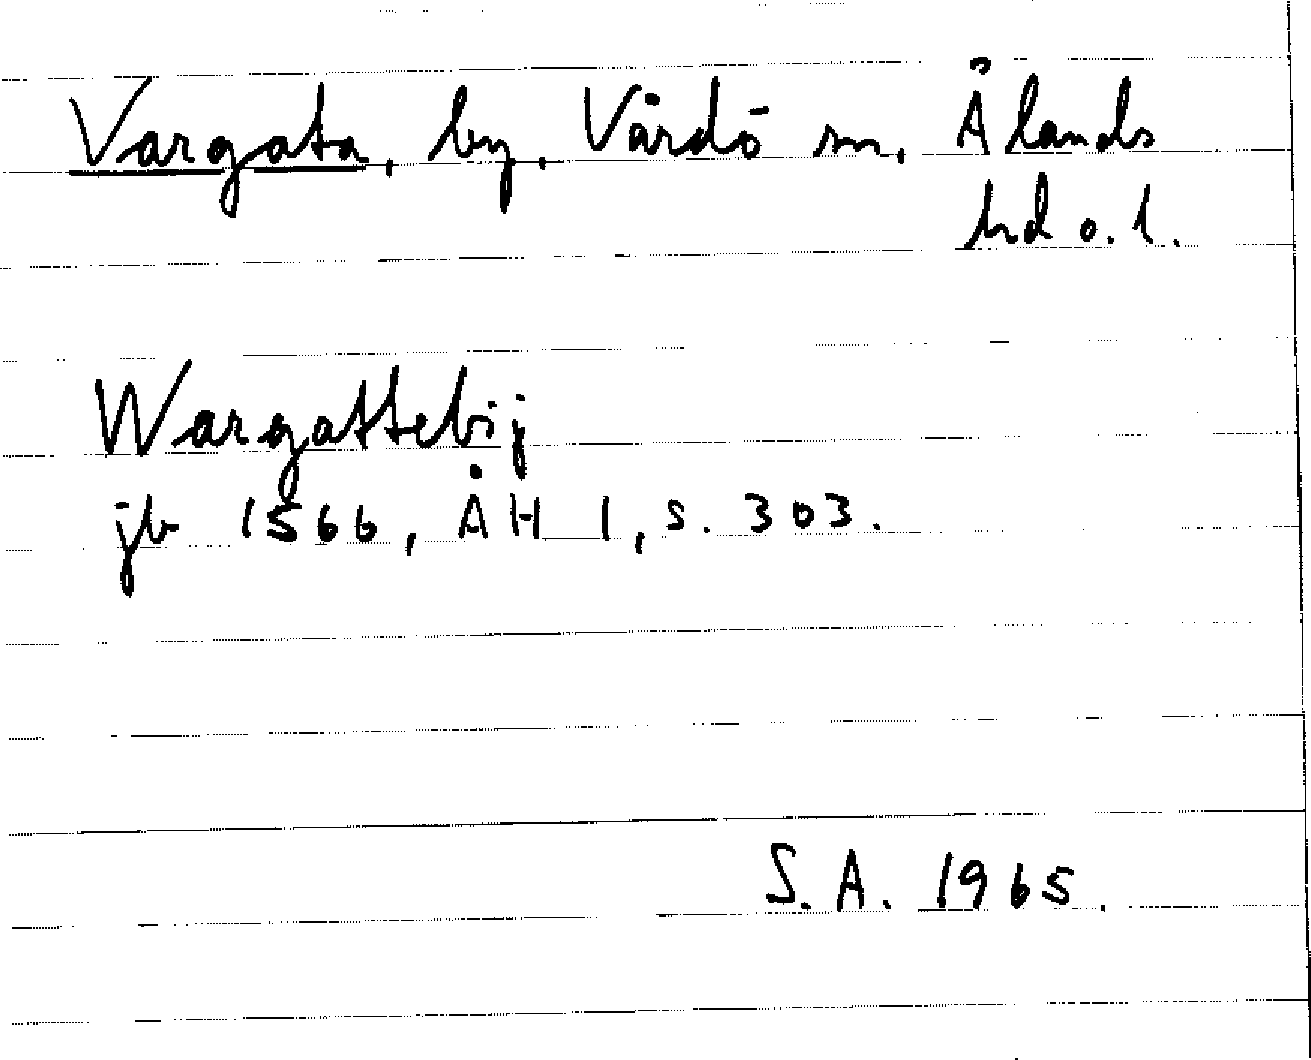 Vargata, by, Vårdö sn, Ålands
hd o. l.
Wargattebij
jb 1566, ÅH 1, s. 303.
S. A. 1965.